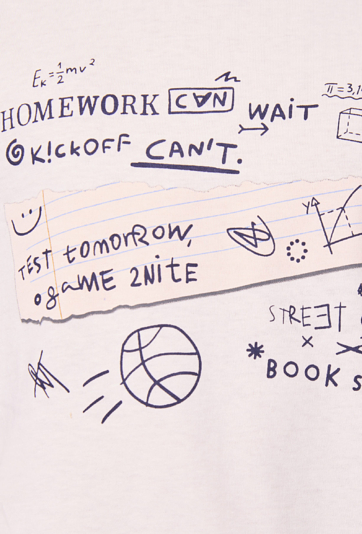 E_K=½mv²
HOMEWORK C∀N WAIT
K!CKOFF CAN'T.
π=3,1
TEST tomorrow,
game 2NITE
Y
STRE∃T
BOOK S